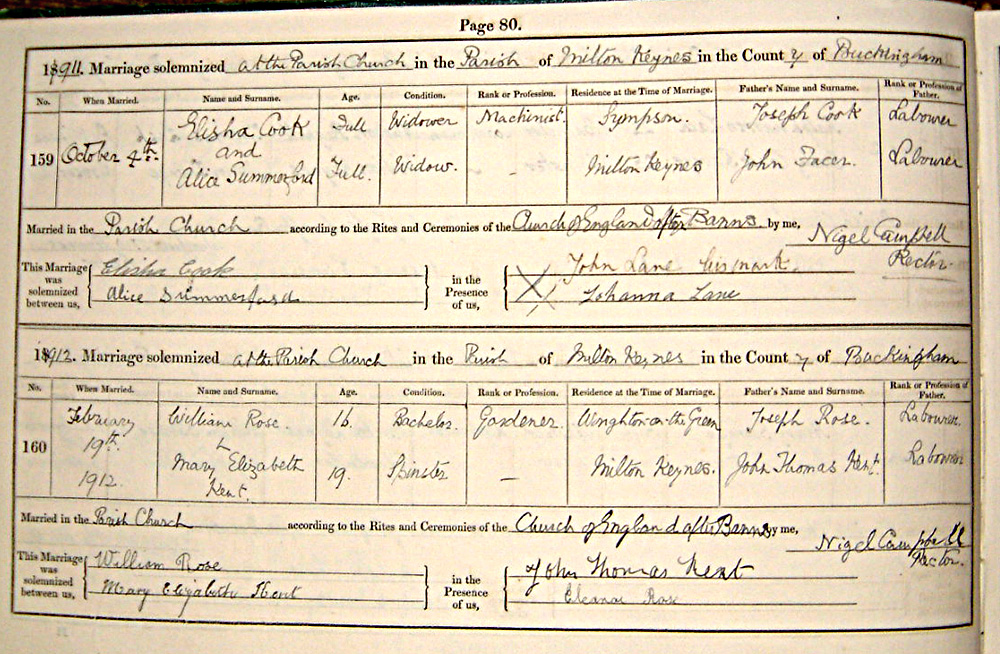 Page 80.
1911. Marriage solemnized at the Parish Church in the Parish of Milton Keynes in the County of Buckingham
No. When Married. Name and Surname. Age. Condition. Rank or Profession. Residence at the Time of Marriage. Father's Name and Surname. Rank or Profession of Father.
159 October 4th. Elisha Cook Full Widower Machinist. Sympson. Joseph Cook Labourer
and
Alice Summerford Full. Widow. - Milton Keynes John Facer. Labourer
Married in the Parish Church according to the Rites and Ceremonies of the Church of England after Banns by me,
Nigel Campbell
Rector.
This Marriage was solemnized between us,
Elisha Cook
Alice Summerford
in the Presence of us,
X John Lane his mark.
Johanna Lane
1912. Marriage solemnized at the Parish Church in the Parish of Milton Keynes in the County of Buckingham
No. When Married. Name and Surname. Age. Condition. Rank or Profession. Residence at the Time of Marriage. Father's Name and Surname. Rank or Profession of Father.
160 February 19th. 1912. William Rose 1b. Bachelor. Gardener. Woughton-on-the-Green Joseph Rose. Labourer.
&
Mary Elizabeth Kent. 19. Spinster - Milton Keynes. John Thomas Kent. Labourer
Married in the Parish Church according to the Rites and Ceremonies of the Church of England after Banns by me,
Nigel Campbell
Rector.
This Marriage was solemnized between us,
William Rose
Mary Elizabeth Kent
in the Presence of us,
John Thomas Kent
Eleanor Rose